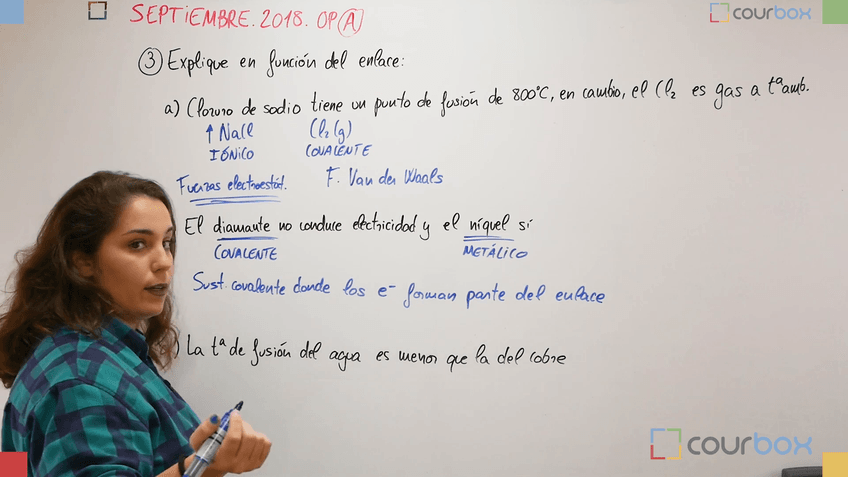 SEPTIEMBRE. 2018. OP A
courbox
③ Explique en función del enlace:
a) Cloruro de sodio tiene un punto de fusión de 800°C, en cambio, el Cl₂ es gas a tª amb.
↑ NaCl Cl₂ (g)
IÓNICO COVALENTE
Fuerzas electroestát. F. Van der Waals
El diamante no conduce electricidad y el níquel sí
COVALENTE METÁLICO
Sust. covalente donde los e⁻ forman parte del enlace
) La tª de fusión del agua es menor que la del cobre
courbox